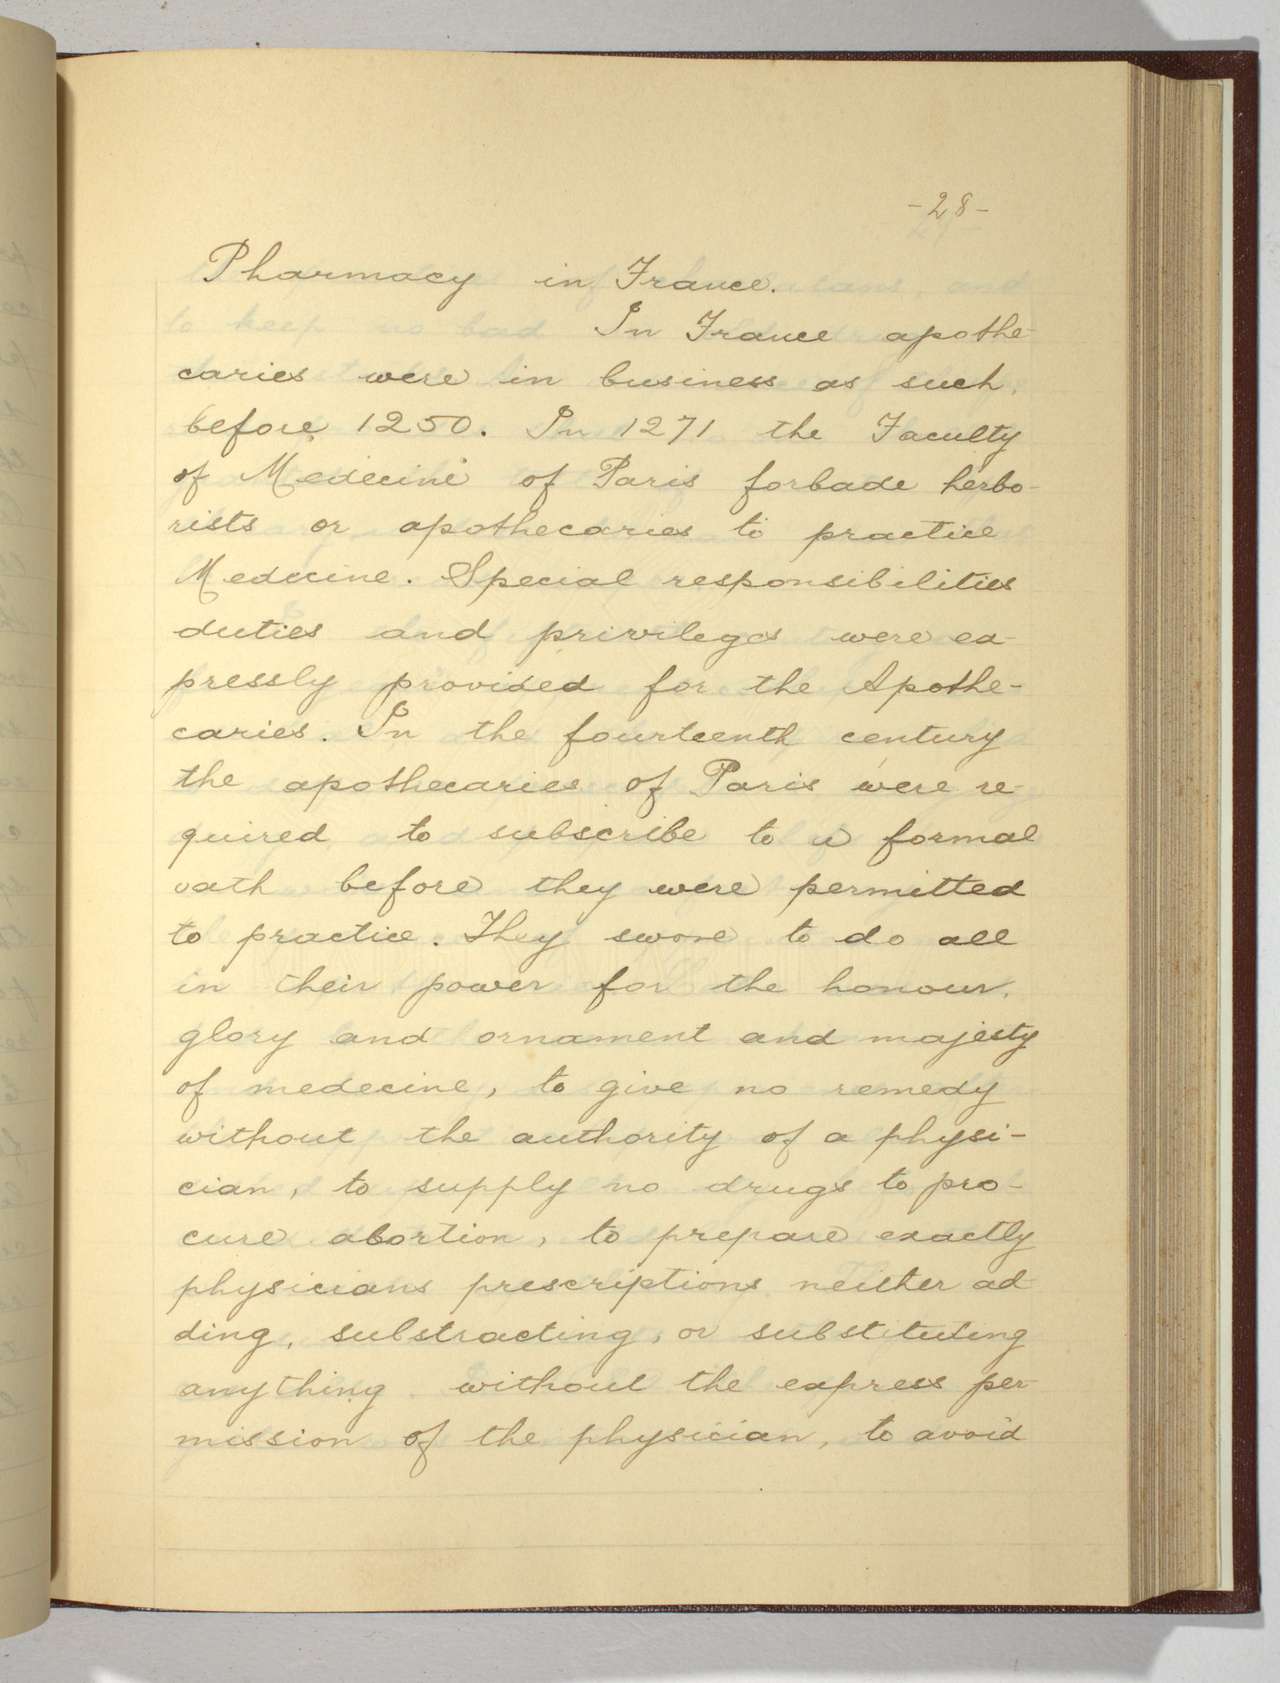 -28-
Pharmacy in France.
In France apothe-
caries were in business as such,
before 1250. In 1271 the Faculty
of Medecine of Paris forbade herbo-
rists or apothecaries to practice
Medecine. Special responsibilities
duties and privileges were ex-
pressly provided for the Apothe-
caries. In the fourteenth century
the apothecaries of Paris were re-
quired to subscribe to a formal
oath before they were permitted
to practice. They swore to do all
in their power for the honour,
glory and ornament and majesty
of medecine, to give no remedy
without the authority of a physi-
cian, to supply no drugs to pro-
cure abortion, to prepare exactly
physicians prescriptions neither ad-
ding, substracting, or substituting
anything without the express per-
mission of the physician, to avoid